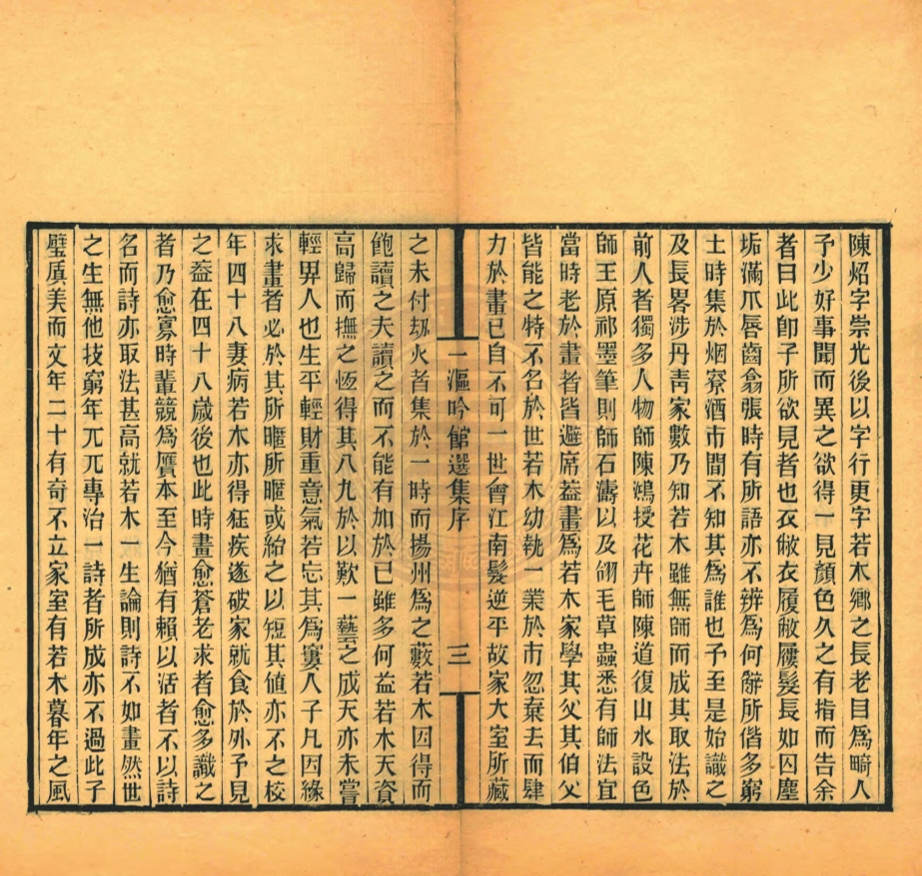 陳炤字崇光後以字行更字若木鄉之長老目爲畸人
予少好事聞而異之欲得一見顏色久之有指而告余
者曰此卽子所欲見者也衣敝衣履敝屨髮長如囚塵
垢滿爪唇齒翕張時有所語亦不辨爲何辭所偕多窮
士時集於烟寮酒市間不知其爲誰也予至是始識之
及長畧涉丹靑家數乃知若木雖無師而成其取法於
前人者獨多人物師陳鴻授花卉師陳道復山水設色
師王原祁墨筆則師石濤以及翎毛草蟲悉有師法宜
當時老於畫者皆避席葢畫爲若木家學其父其伯父
皆能之特不名於世若木幼執一業於市忽棄去而肆
力於畫已自不可一世會江南髮逆平故家大室所藏
一漚吟館選集序 三
之未付刼火者集於一時而揚州爲之藪若木因得而
飽讀之夫讀之而不能有加於已雖多何益若木天資
高歸而撫之恆得其八九於以歎一藝之成天亦未嘗
輕畀人也生平輕財重意氣若忘其爲寠人子凡因緣
求畫者必於其所暱所暱或紿之以短其値亦不之校
年四十八妻病若木亦得狂疾遂破家就食於外予見
之葢在四十八歲後也此時畫愈蒼老求者愈多識之
者乃愈寡時輩競爲贋本至今猶有賴以活者不以詩
名而詩亦取法甚高就若木一生論則詩不如畫然世
之生無他技窮年兀兀專治一詩者所成亦不過此子
璧厧美而文年二十有奇不立家室有若木暮年之風